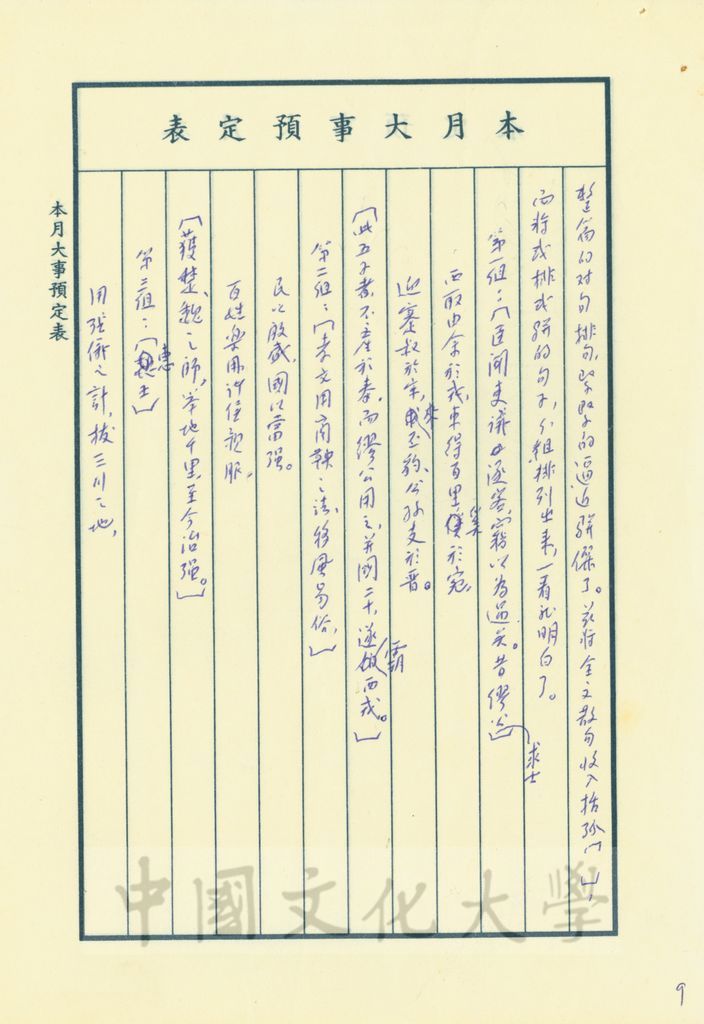 本月大事預定表
整篇的對句排句,緊緊的逼近駢儷了。茲將全文散句收入括弧〔〕,
而將或排或駢的句子,分組排列出來,一看就明白了。
第一組:〔臣聞吏議逐客,竊以為過矣。昔繆公〕求士
西取由余於戎,東得百里奚於宛,
迎蹇叔於宋,來丕豹、公孫支於晉。
〔此五子者,不產於秦,而繆公用之,并國二十,遂霸西戎。〕
第二組:〔孝文用商鞅之法,移風易俗,〕
民以殷盛,國以富強。
百姓樂用,諸侯親服。
〔獲楚、魏之師,舉地千里,至今治強。〕
第三組:〔惠王〕
用張儀之計,拔三川之地,
本月大事預定表
中國文化大學
9